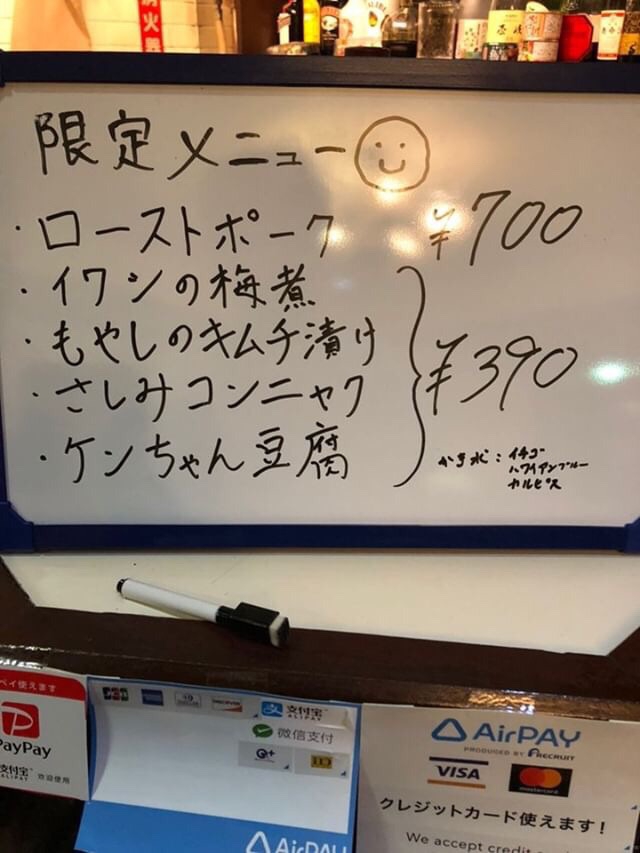 消火器
限定メニュー
・ローストポーク ¥700
・イワシの梅煮
・もやしのキムチ漬け
・さしみコンニャク
・ケンちゃん豆腐
¥390
かき氷：イチゴ
ハワイアンブルー
カルピス
ペイ使えます
PayPay
支付宝
ALIPAY
欢迎使用
JCB
DISCOVER
支付宝
ALIPAY
微信支付
iD
AirPAY
AirPAY
PRODUCED BY RECRUIT
VISA
mastercard
クレジットカード使えます！
We accept credit